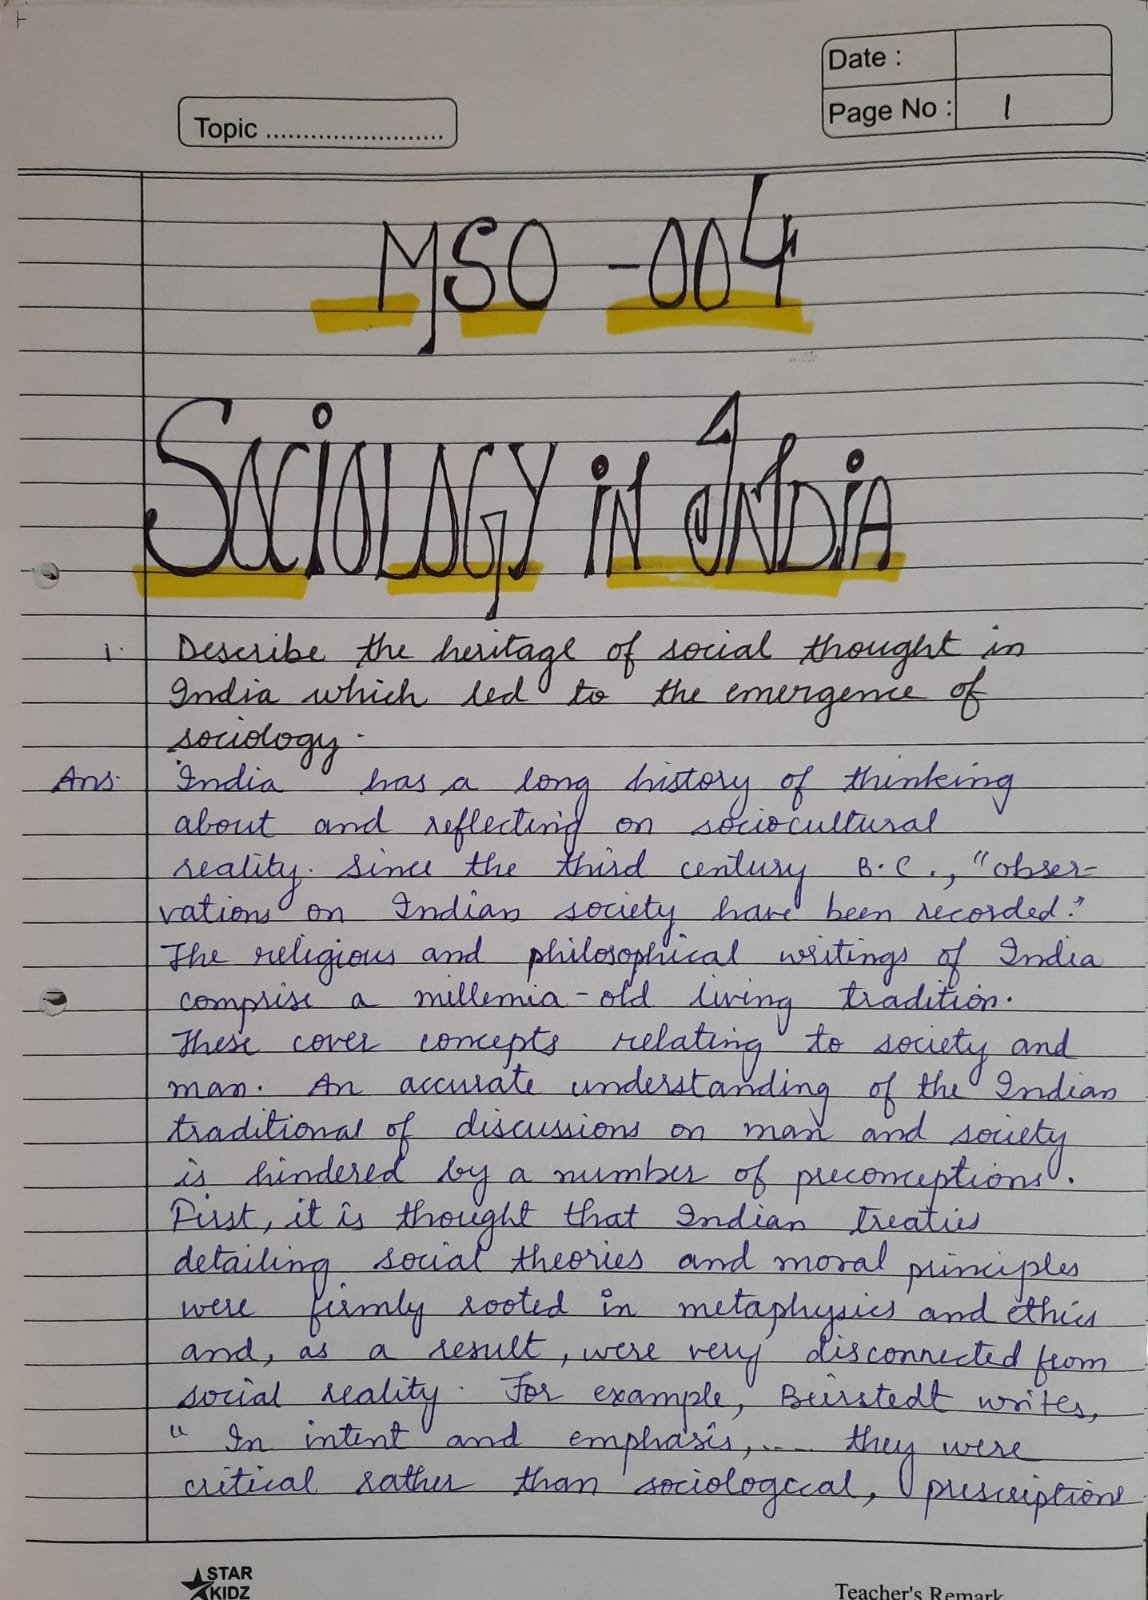 Date :
Page No : 1
Topic ........................
MSO -004
SOCiOLOGY iN INDiA
1. Describe the heritage of social thought in
India which led to the emergence of
sociology.
Ans. India has a long history of thinking
about and reflecting on sociocultural
reality. Since the third century B.C., "obser-
vations on Indian society have been recorded."
The religious and philosophical writings of India
comprise a millemia-old living tradition.
These cover concepts relating to society and
man. An accurate understanding of the Indian
traditional of discussions on man and society
is hindered by a number of preconceptions.
First, it is thought that Indian treaties
detailing social theories and moral principles
were firmly rooted in metaphysics and ethics
and, as a result, were very disconnected from
social reality. For example, Beirstedt writes,
" In intent and emphasis, .... they were
critical rather than sociologccal, prescriptions
STAR
KIDZ
Teacher's Remark